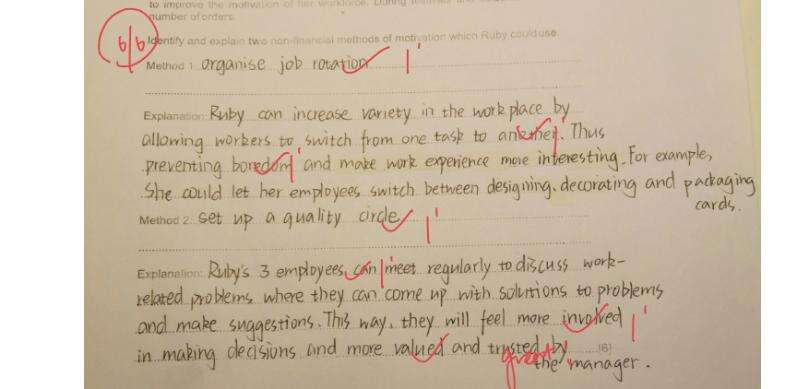 to improve the motivation of her workforce. During
number of orders.
6/6 Identify and explain two non-financial methods of motivation which Ruby could use.
Method 1 organise job rotation 1
Explanation: Ruby can increase variety in the work place by
allowing workers to switch from one task to another. Thus
preventing boredom and make work experience more interesting. For example,
She could let her employees switch between designing, decorating and packaging
cards.
Method 2: set up a quality circle 1
Explanation: Ruby's 3 employees can meet regularly to discuss work-
related problems where they can come up with solutions to problems
and make suggestions. This way, they will feel more involved 1
in making decisions and more valued and trusted by [6]
great the manager.